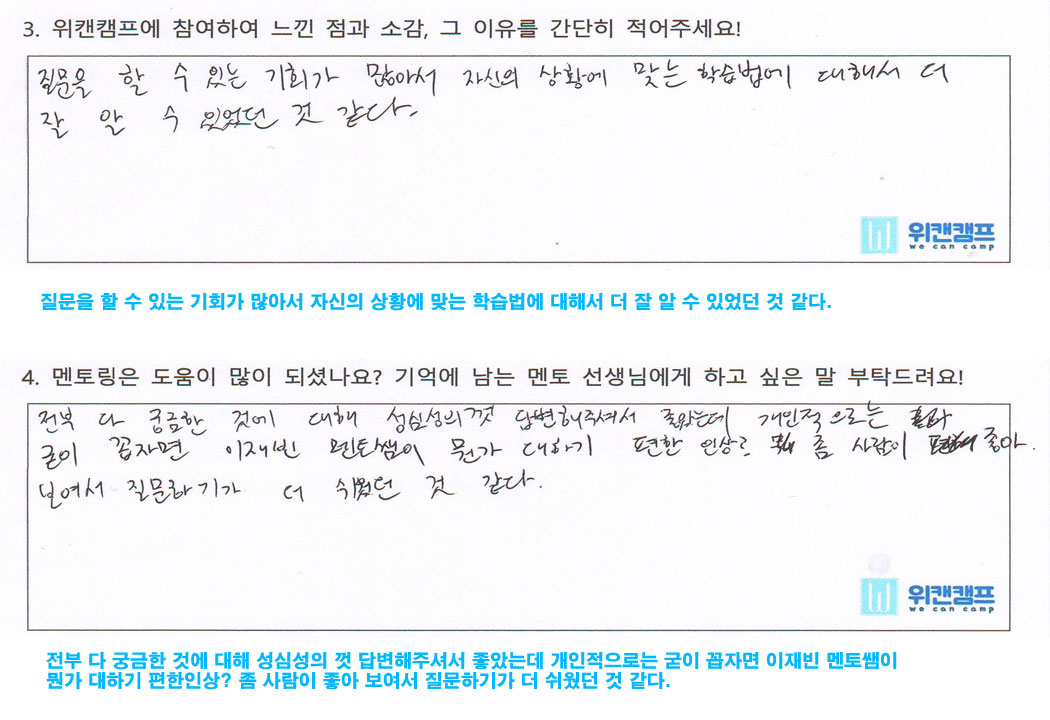 3. 위캔캠프에 참여하여 느낀 점과 소감, 그 이유를 간단히 적어주세요!
질문을 할 수 있는 기회가 많아서 자신의 상황에 맞는 학습법에 대해서 더
잘 알 수 있었던 것 같다.
위캔캠프
we can camp
질문을 할 수 있는 기회가 많아서 자신의 상황에 맞는 학습법에 대해서 더 잘 알 수 있었던 것 같다.
4. 멘토링은 도움이 많이 되셨나요? 기억에 남는 멘토 선생님에게 하고 싶은 말 부탁드려요!
전부 다 궁금한 것에 대해 성심성의껏 답변해주셔서 좋았는데 개인적으로는
굳이 꼽자면 이재빈 멘토쌤이 뭔가 대하기 편한 인상? 좀 사람이 좋아
보여서 질문하기가 더 쉬웠던 것 같다.
위캔캠프
we can camp
전부 다 궁금한 것에 대해 성심성의 껏 답변해주셔서 좋았는데 개인적으로는 굳이 꼽자면 이재빈 멘토쌤이
뭔가 대하기 편한인상? 좀 사람이 좋아 보여서 질문하기가 더 쉬웠던 것 같다.